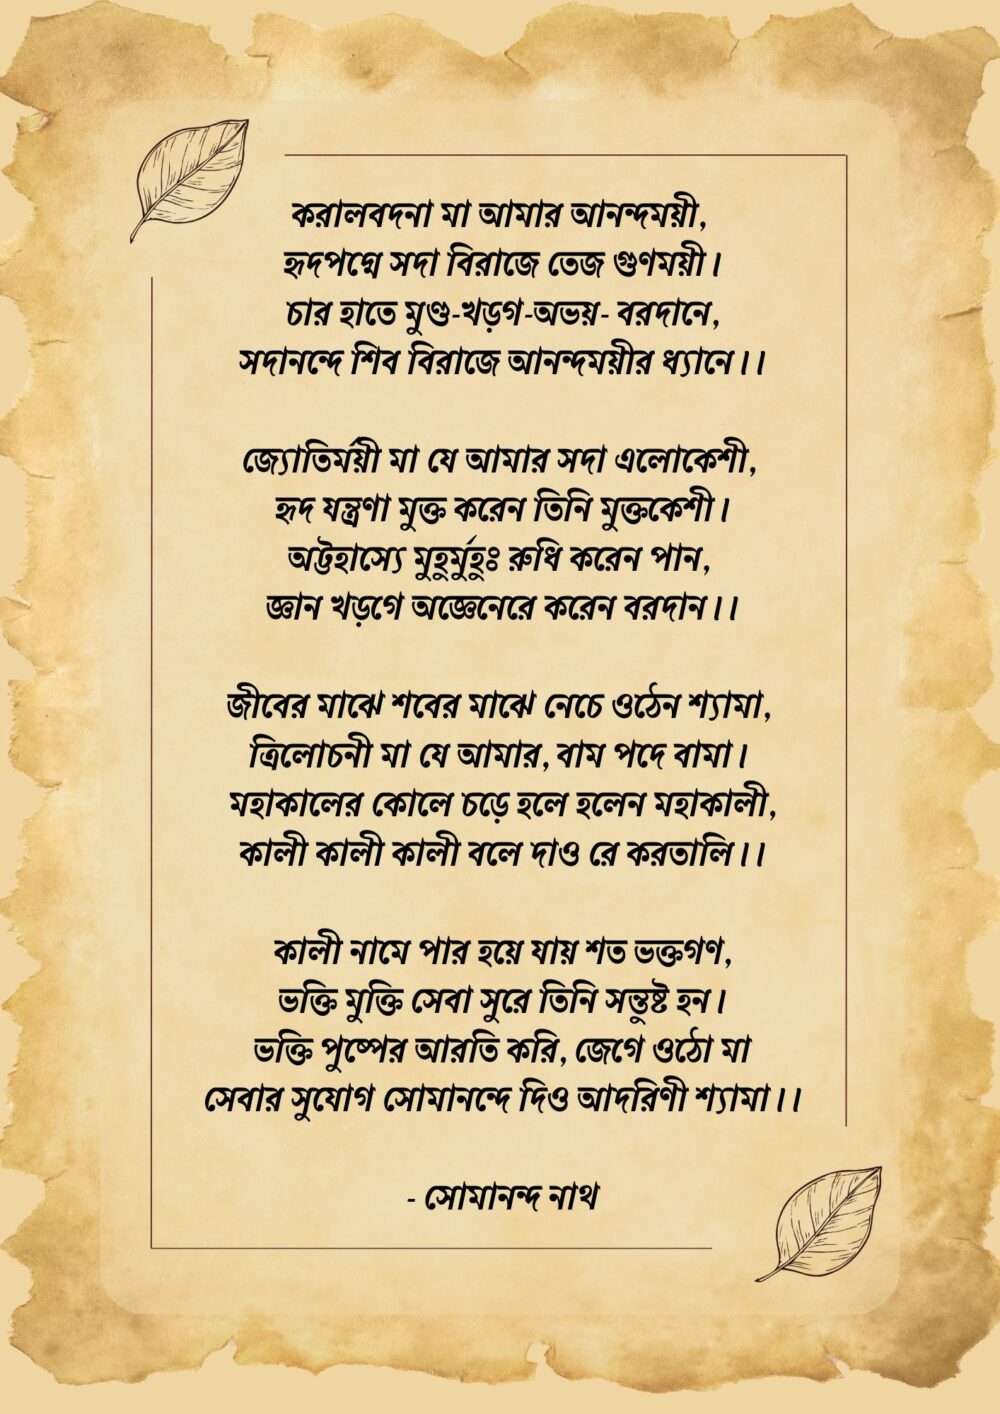 করালবদনা মা আমার আনন্দময়ী,
হৃদপদ্মে সদা বিরাজে তেজ গুণময়ী।
চার হাতে মুণ্ড-খড়গ-অভয়- বরদানে,
সদানন্দে শিব বিরাজে আনন্দময়ীর ধ্যানে।।
জ্যোতির্ময়ী মা যে আমার সদা এলোকেশী,
হৃদ যন্ত্রণা মুক্ত করেন তিনি মুক্তকেশী।
অট্টহাস্যে মুহুর্মুহুঃ রুধি করেন পান,
জ্ঞান খড়গে অজ্ঞেনেরে করেন বরদান।।
জীবের মাঝে শবের মাঝে নেচে ওঠেন শ্যামা,
ত্রিলোচনী মা যে আমার, বাম পদে বামা।
মহাকালের কোলে চড়ে হলে হলেন মহাকালী,
কালী কালী কালী বলে দাও রে করতালি।।
কালী নামে পার হয়ে যায় শত ভক্তগণ,
ভক্তি মুক্তি সেবা সুরে তিনি সন্তুষ্ট হন।
ভক্তি পুষ্পের আরতি করি, জেগে ওঠো মা
সেবার সুযোগ সোমানন্দে দিও আদরিণী শ্যামা।।
- সোমানন্দ নাথ